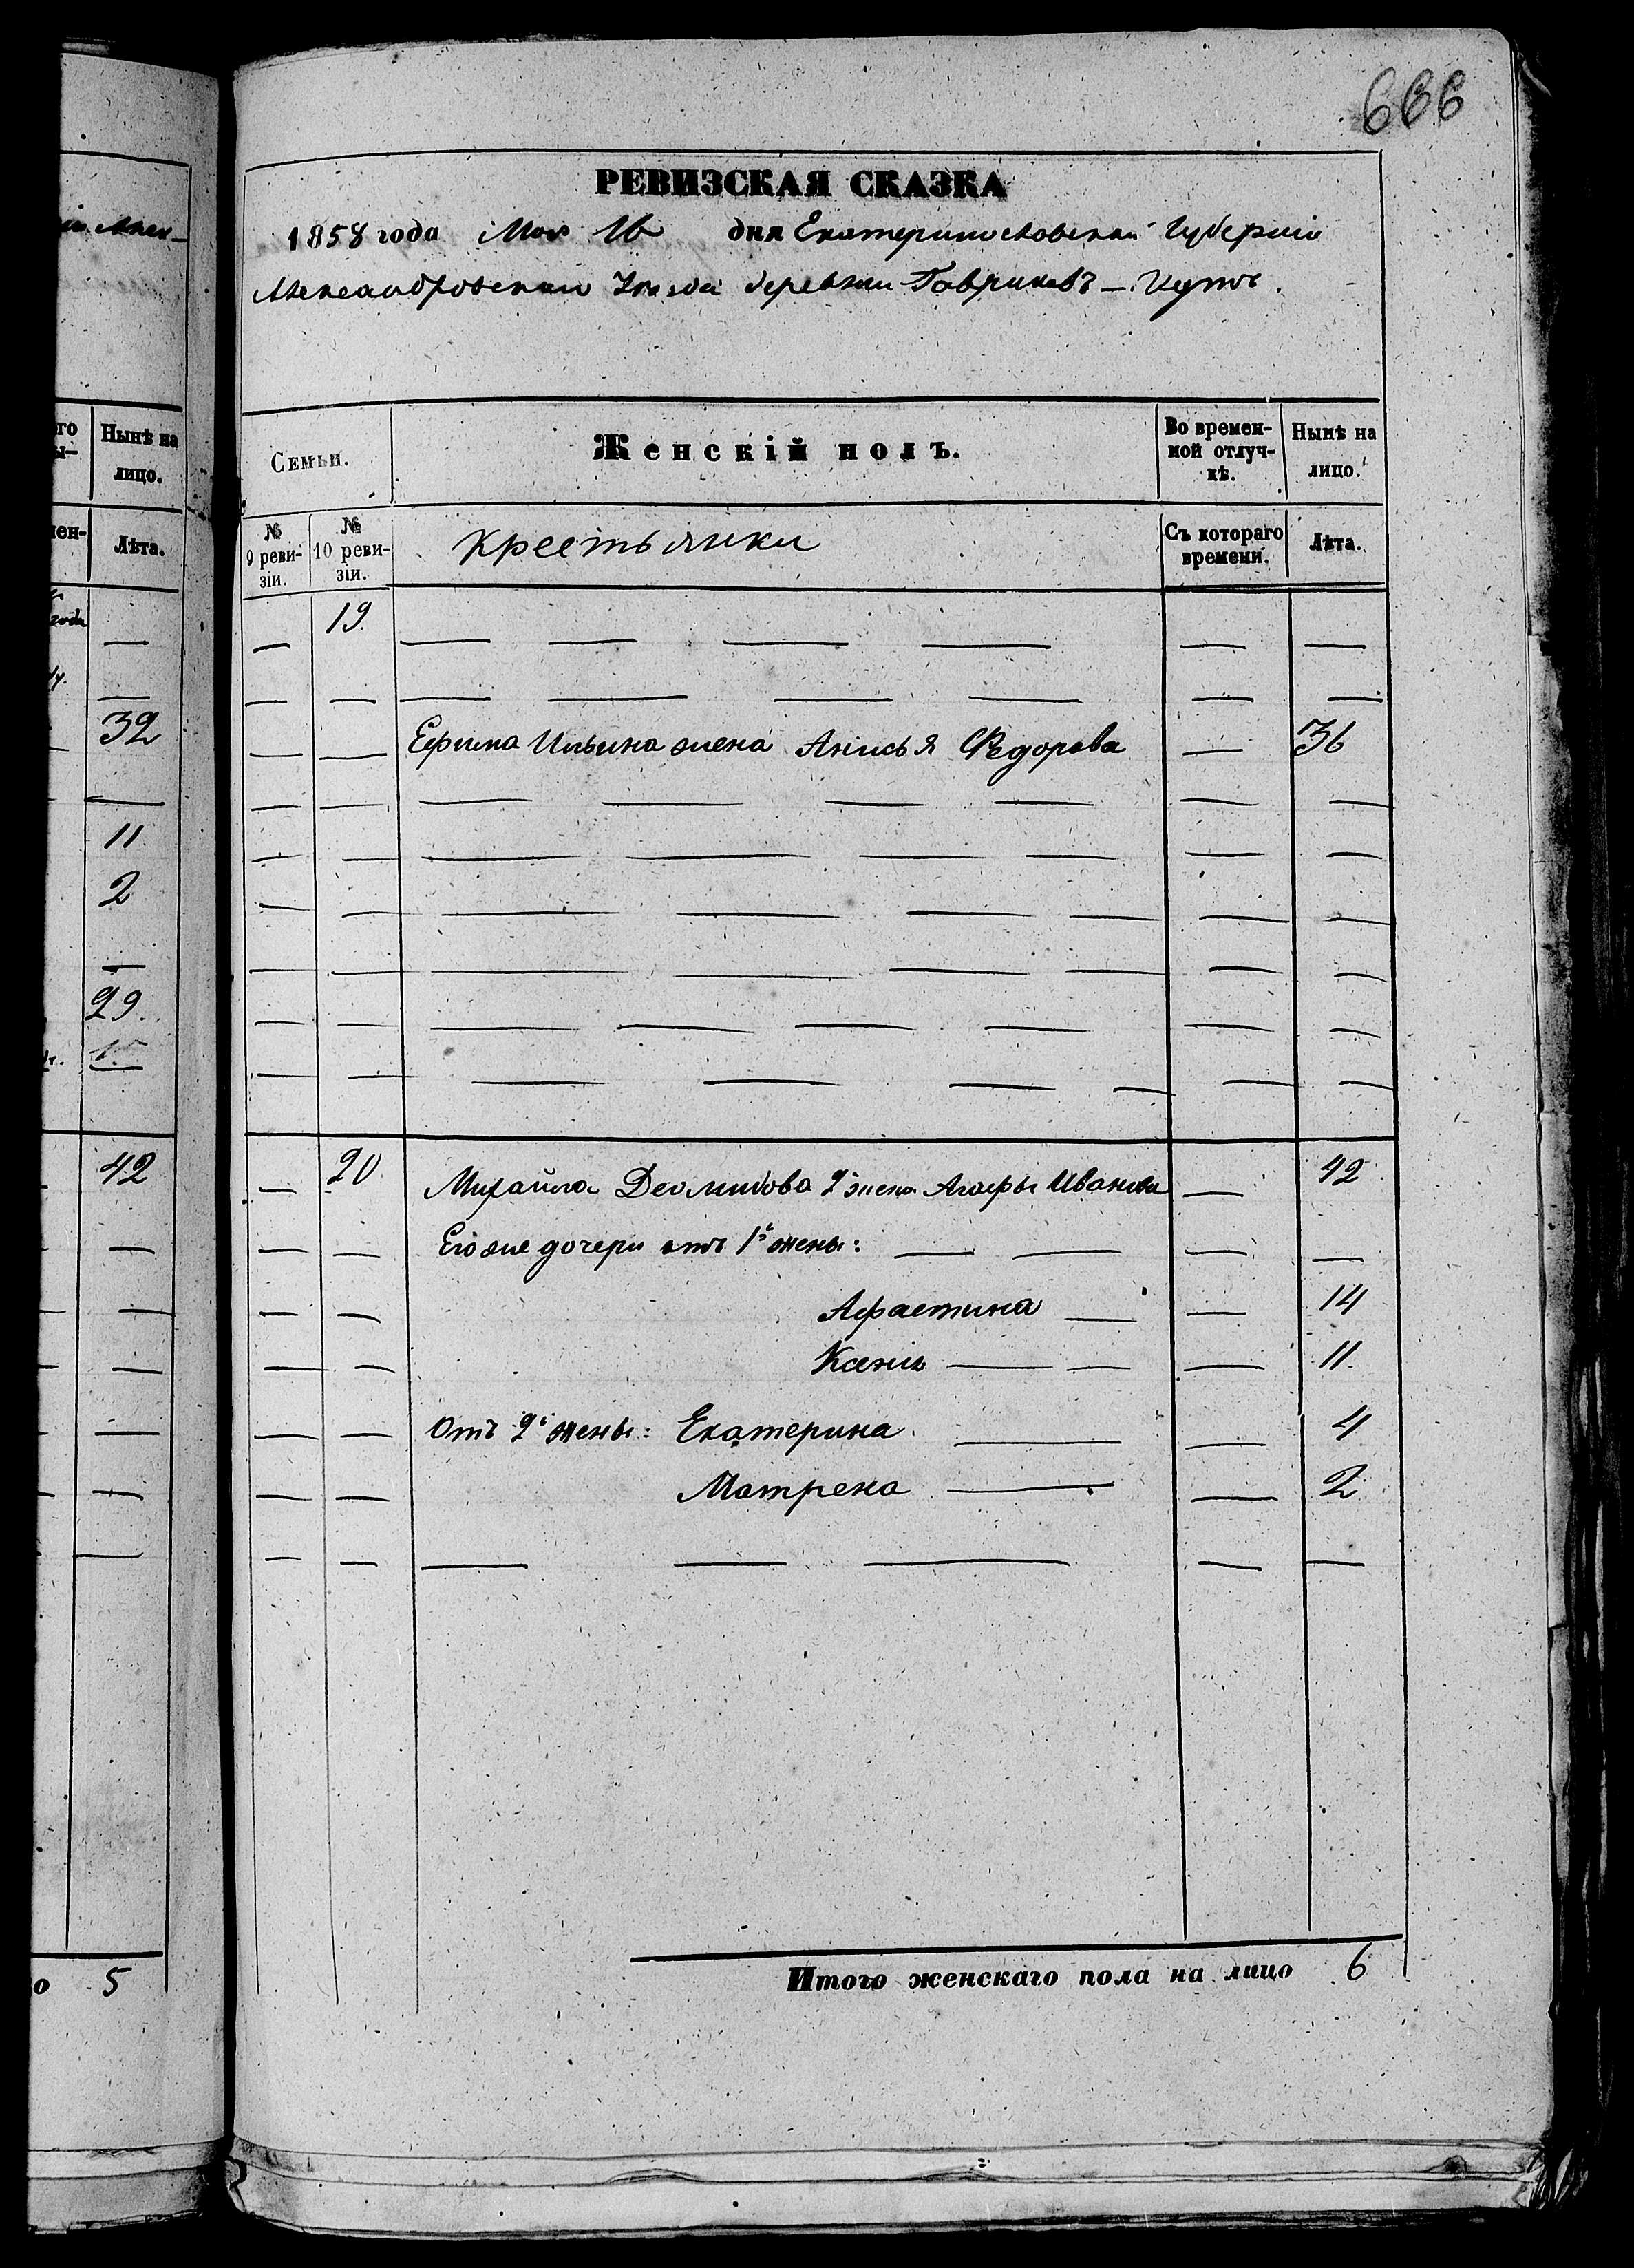 666
РЕВИЗСКАЯ СКАЗКА
1858 года Мая 16 дня Екатеринославской Губерніи
Александровскаго Уезда деревни Гавриковъ – Кутъ.
Семьи. Женскій полъ. Во времен-
ной отлуч-
кѣ. Нынѣ на
лицо.
№
9 реви-
зіи. №
10 реви-
зіи. Крестьянки Съ котораго
времени. Лѣта.
19.
Ефима Ильина жена Анисья Федорова 36
20 Михайла Деомидова 2я жена Агафья Иванова 42
Его же дочери отъ 1й жены:
Афастина 14
Ксенія 11.
Отъ 2й жены: Екатерина 4
Матрена 2
Итого женскаго пола на лицо 6
го
ы-
Нынѣ на
лицо.
мен-
Лѣта.
года
32
11
2
29.
1.
42
о 5